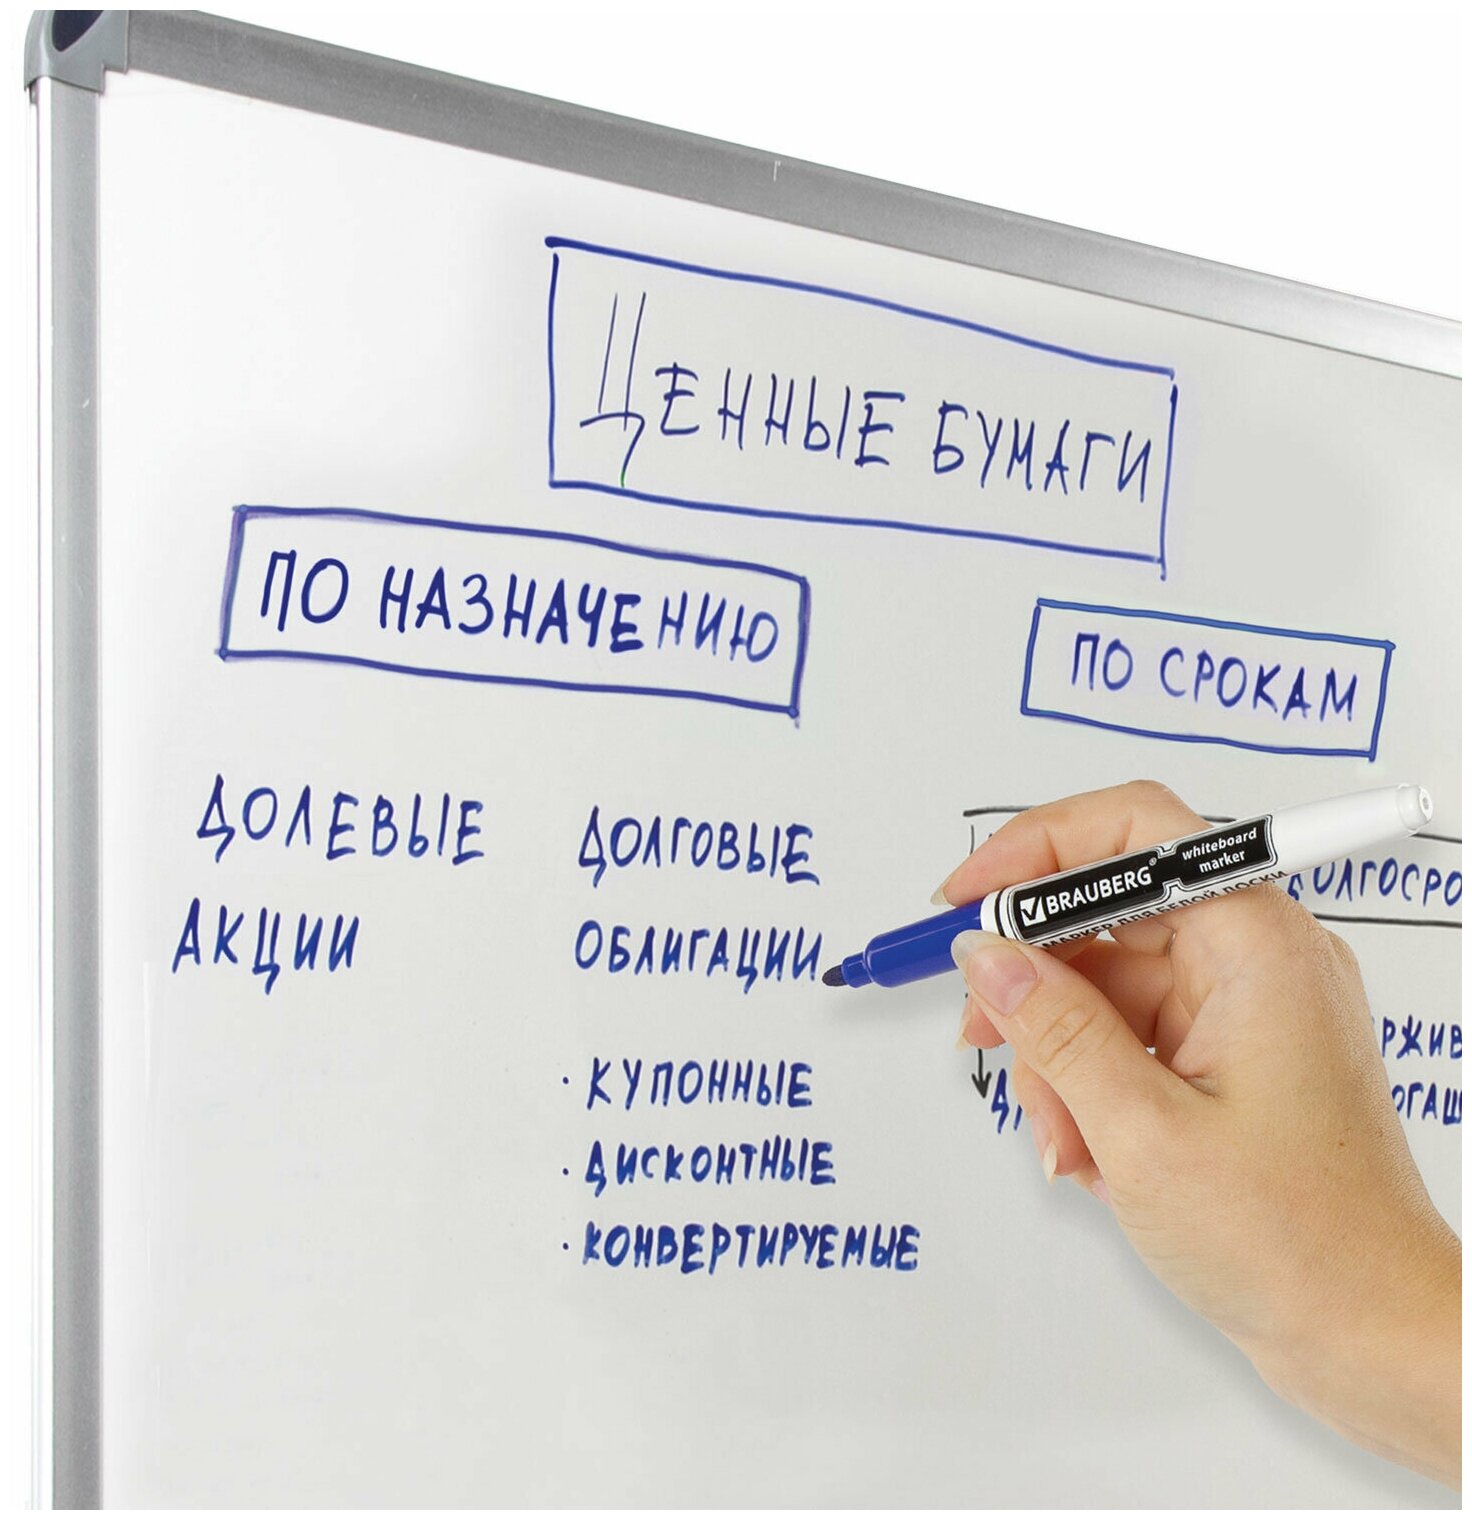 ЦЕННЫЕ БУМАГИ
ПО НАЗНАЧЕНИЮ
ПО СРОКАМ
ДОЛЕВЫЕ
АКЦИИ
ДОЛГОВЫЕ
ОБЛИГАЦИИ
· КУПОННЫЕ
· ДИСКОНТНЫЕ
· КОНВЕРТИРУЕМЫЕ
BRAUBERG®
whiteboard
marker
МАРКЕР ДЛЯ БЕЛОЙ ДОСКИ